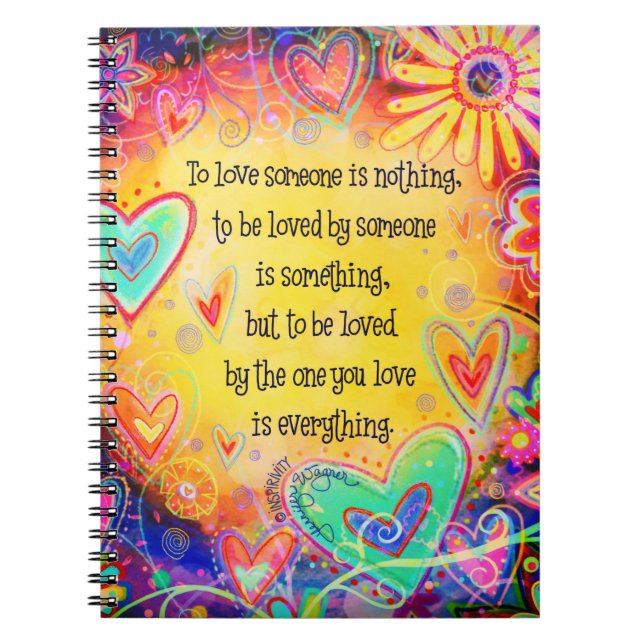 To love someone is nothing,
to be loved by someone
is something,
but to be loved
by the one you love
is everything.
© INSPIRIVITY
Wagner